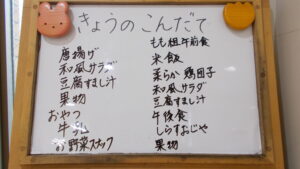 きょうのこんだて
唐揚げ
和風サラダ
豆腐すまし汁
果物
おやつ
牛乳
お野菜スナック
もも組午前食
米飯
柔らか鶏団子
和風サラダ
豆腐すまし汁
午後食
しらすおじや
果物